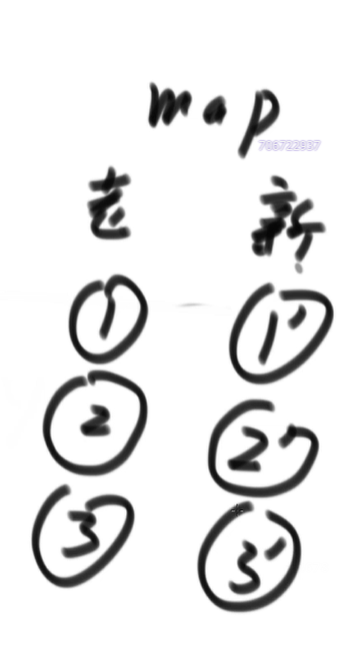 map
706722937
老 新
1 1'
2 2'
3 3'